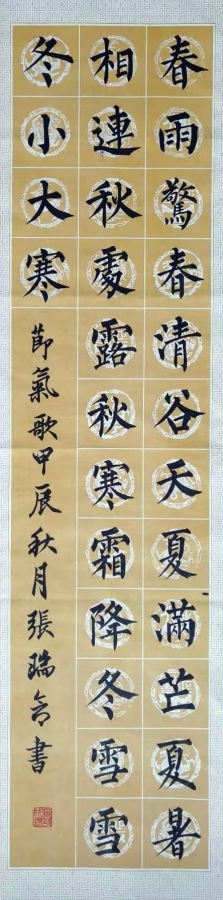 春雨驚春清谷天夏滿芒夏暑
相連秋處露秋寒霜降冬雪雪
冬小大寒
節氣歌甲辰秋月張瑞書